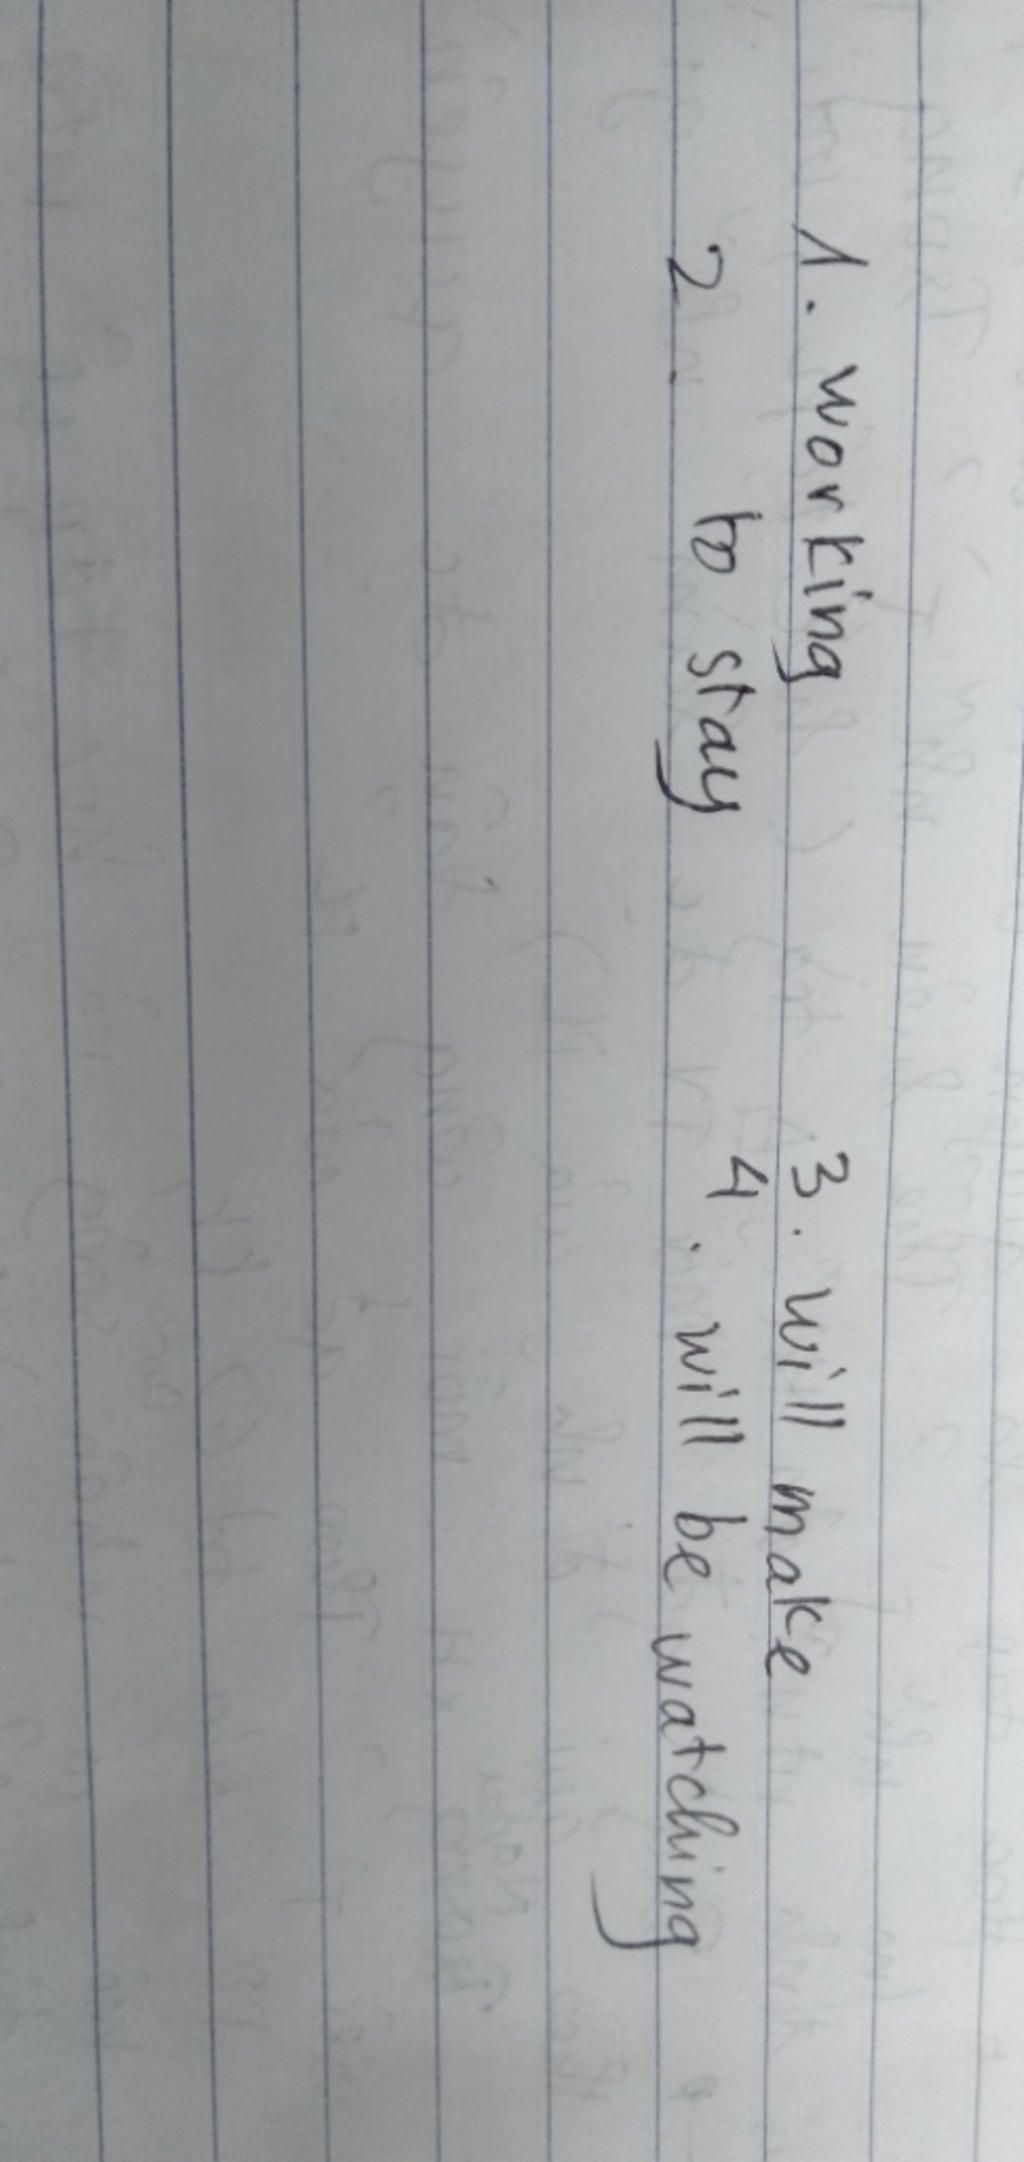 1. working
2. to stay
3. will make
4. will be watching